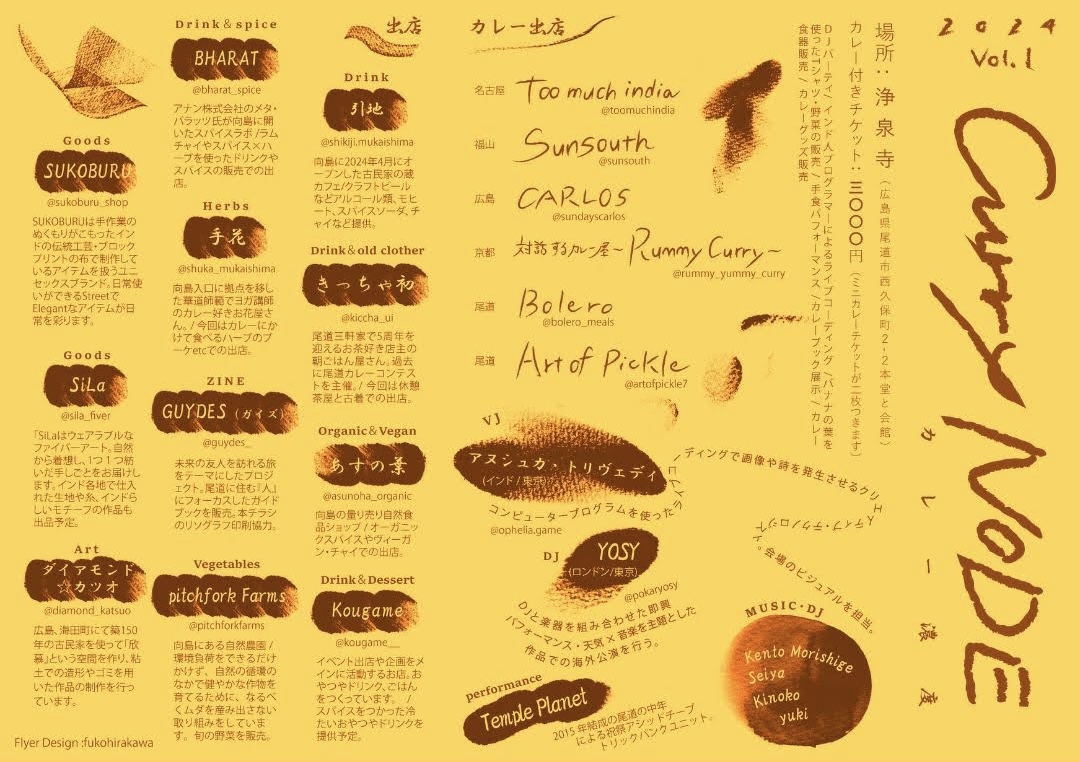 2024
Vol.1
Curry NoDE
カレー濃度
場所：浄泉寺（広島県尾道市西久保町2-2本堂と会館）
カレー付きチケット：三〇〇〇円（ミニカレーチケットが二枚つきます）
DJパーティ/インド人プログラマーによるライブコーディング/バナナの葉を
使ったTシャツ・野菜の販売/手食パフォーマンス/カレーブック展示/カレー
食器販売/カレーグッズ販売
カレー出店
名古屋 Too much india
@toomuchindia
福山 Sunsouth
@sunsouth
広島 CARLOS
@sundayscarlos
京都 対話するカレー屋~Rummy Curry~
@rummy_yummy_curry
尾道 Bolero
@bolero_meals
尾道 Art of Pickle
@artofpickle7
VJ
アヌシュカ・トリヴェディ
（インド/東京）
@ophelia.game
コンピュータープログラムを使ったライブコーディングで画像や詩を発生させるクリエイティブ・テクノロジスト。会場のビジュアルを担当。
DJ
YOSY
（ロンドン/東京）
@pokaryosy
DJと楽器を組み合わせた即興
パフォーマンス・天気×音楽を主題とした
作品での海外公演を行う。
performance
Temple Planet
2015年結成の尾道の中年
による祝祭アシッドテープ
トリックバンクユニット。
MUSIC・DJ
Kento Morishige
Seiya
Kinoko
yuki
出店
Drink
引地
@shikiji.mukaishima
向島に2024年4月にオ
ープンした古民家の蔵
カフェ/クラフトビール
などアルコール類、モヒ
ート、スパイスソーダ、チ
ャイなど提供。
Drink&old clother
きっちゃ初
@kiccha_ui
尾道三軒家で5周年を
迎えるお茶好き店主の
朝ごはん屋さん。過去
に尾道カレーコンテス
トを主催。/今回は休憩
茶屋と古着での出店。
Organic&Vegan
あすの葉
@asunoha_organic
向島の量り売り自然食
品ショップ/オーガニッ
クスパイスやヴィーガ
ン・チャイでの出店。
Drink&Dessert
Kougame
@kougame__
イベント出店や企画をメ
インに活動するお店。お
やつやドリンク、ごはん
をつくっています。/
スパイスをつかった冷
たいおやつやドリンクを
提供予定。
Drink&spice
BHARAT
@bharat_spice
アナン株式会社のメタ・
バラッツ氏が向島に開
いたスパイスラボ/ラム
チャイやスパイス×ハ
ーブを使ったドリンクや
スパイスの販売での出
店。
Herbs
手花
@shuka_mukaishima
向島入口に拠点を移し
た華道師範でヨガ講師
のカレー好きお花屋さ
ん。/今回はカレーにか
けて食べるハーブのブ
ーケetcでの出店。
ZINE
GUYDES（ガイズ）
@guydes_
未来の友人を訪れる旅
をテーマにしたプロジ
ェクト。尾道に住む『人』
にフォーカスしたガイド
ブックを販売。本チラシ
のリソグラフ印刷協力。
Vegetables
pitchfork Farms
@pitchforkfarms
向島にある自然農園/
環境負荷をできるだけ
かけず、自然の循環の
なかで健やかな作物を
育てるために、なるべ
くムダを産み出さない
取り組みをしていま
す。旬の野菜を販売。
Goods
SUKOBURU
@sukoburu_shop
SUKOBURUは手作業の
ぬくもりがこもったイン
ドの伝統工芸・ブロック
プリントの布で制作して
いるアイテムを扱うユニ
セックスブランド。日常使
いができるStreetで
Elegantなアイテムが日
常を彩ります。
Goods
SiLa
@sila_fiver
「SiLaはウェアラブルな
ファイバーアート。自然
から着想し、1つ1つ紡
いだ手しごとをお届けし
ます。インド各地で仕入
れた生地や糸、インドら
しいモチーフの作品も
出品予定。
Art
ダイアモンド
☆カツオ
@diamond_katsuo
広島、海田町にて築150
年の古民家を使って「欣
慕」という空間を作り、粘
土での造形やゴミを用
いた作品の制作を行っ
ています。
Flyer Design :fukohirakawa